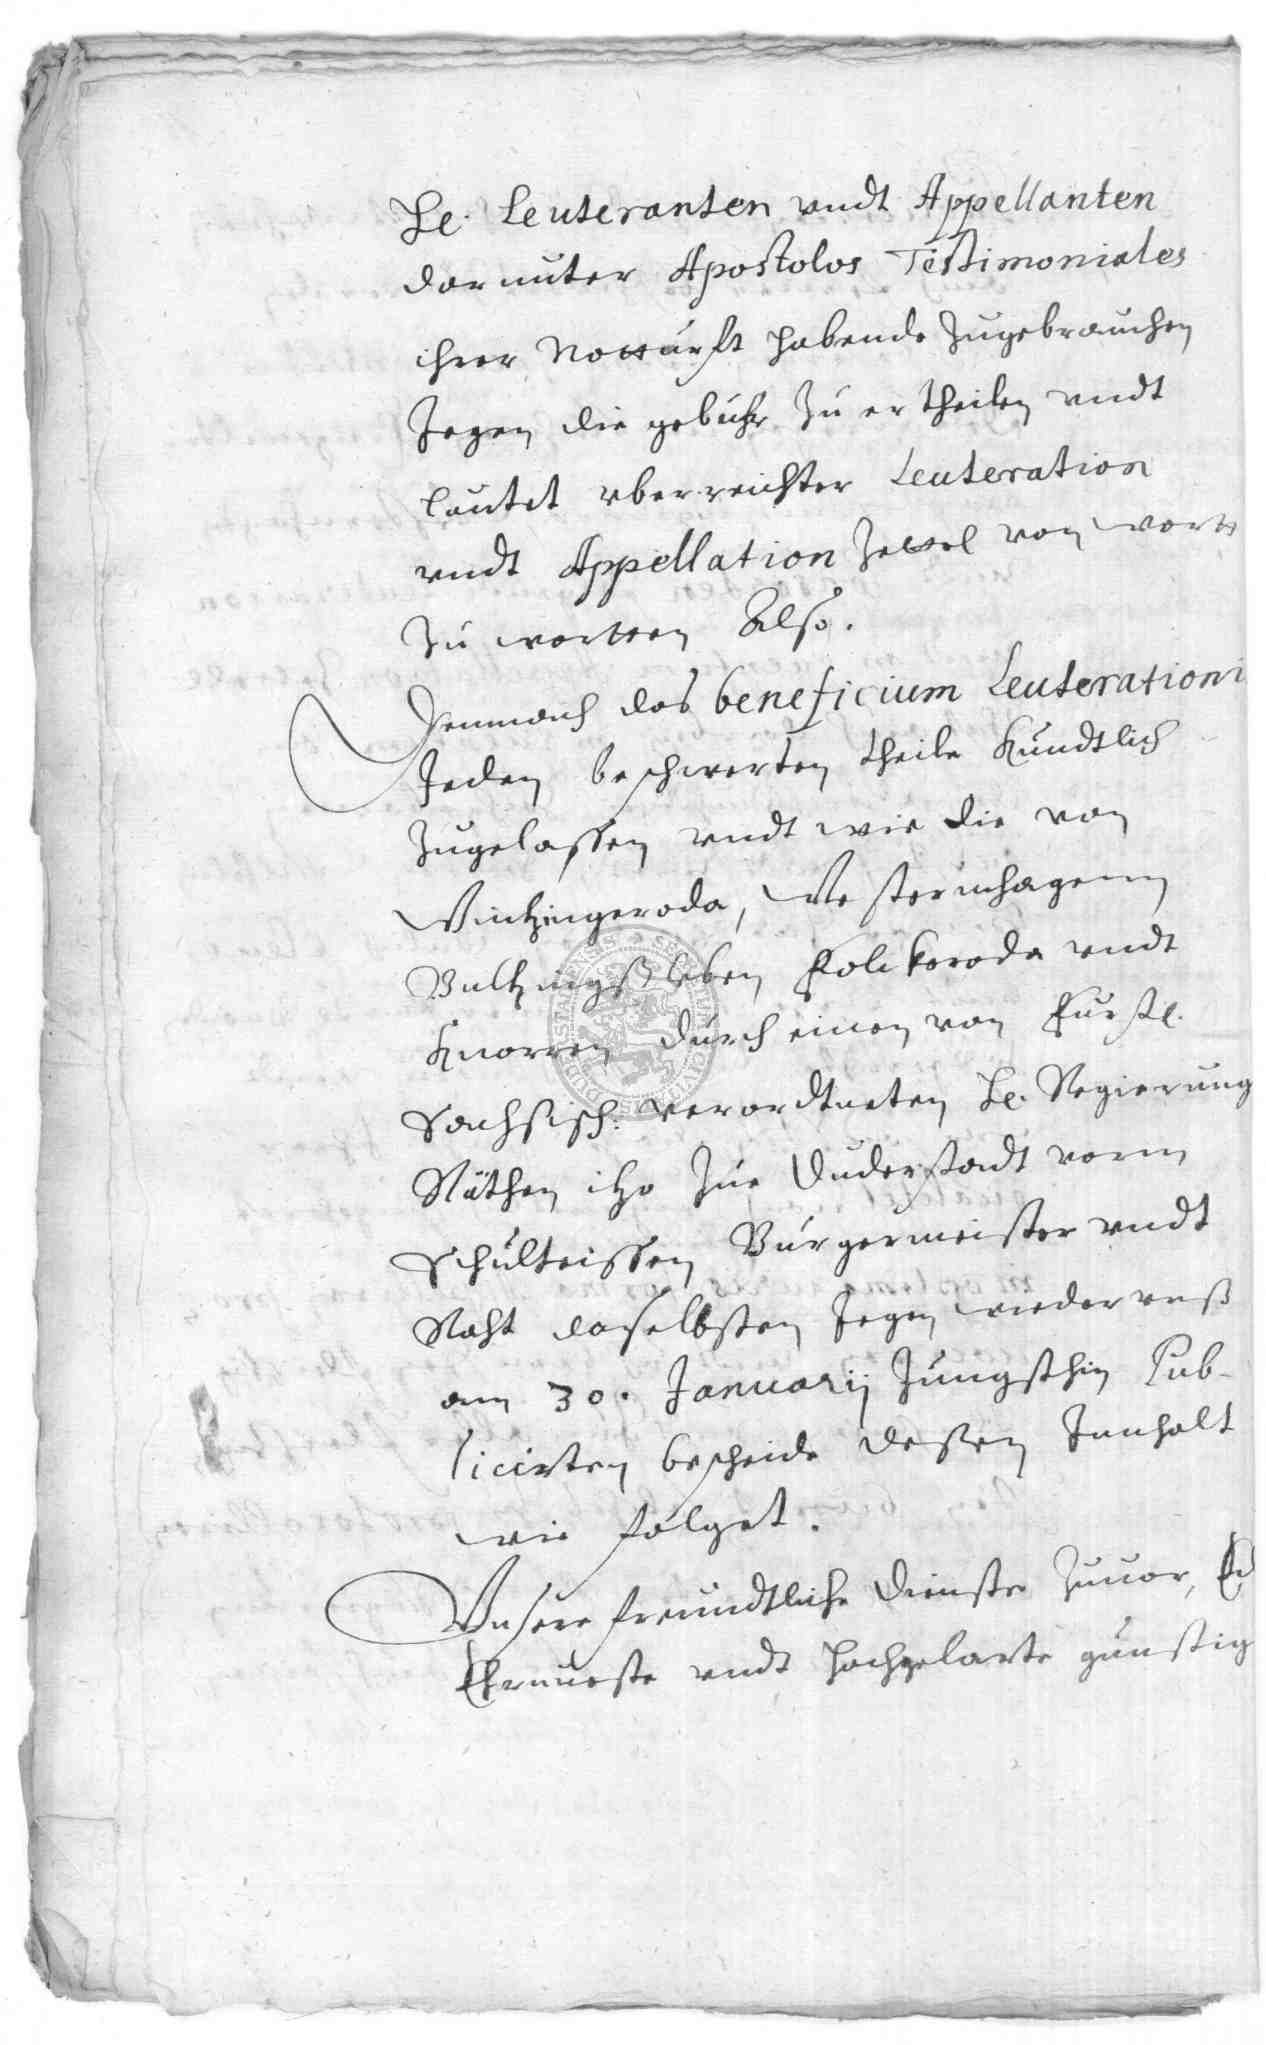 He. Leuteranten vndt Appellanten
darunter Apostolos Testimoniales
ihrer Notturft habende Zugebrauchen
Jegen die gebuhr Zu ertheilen vndt
lautet vberreichter Leuteration
vndt Appellation Zettel von wortt
Zu wortten Also.
Demnach das beneficium Leuterationi
Jeden beschwerten theile Kundtlich
Zugelassen vndt wir die von
Wintzingeroda, Westernhagenn
Bultzingßleben Kolckeroda vndt
Knorren durch einen von Furstl.
Sachsisch. verordtneten He. Regierung
Räthen itzo Zue Duderstadt vorm
Schulteissen Burgermeister vndt
Raht daselbsten Jegen wieder vnß
am 30. Januarij Jungsthin Pub-
licirten bescheide dessen Innhalt
wie folget.
Vnsere freundtliche Dienste Zuuor,
Ehrnueste vndt hochgelarte gunstig